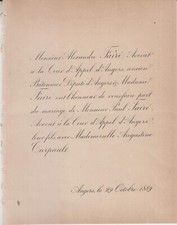 Monsieur Alexandre Fairé, Avocat
à la Cour d'Appel d'Angers, ancien
Bâtonnier, Député d'Angers & Madame
Fairé ont l'honneur de vous faire part
du mariage de Monsieur Paul Fairé
Avocat à la Cour d'Appel d'Angers
leur fils, avec Mademoiselle Augustine
Curpault.
Angers, le 29 Octobre 1889